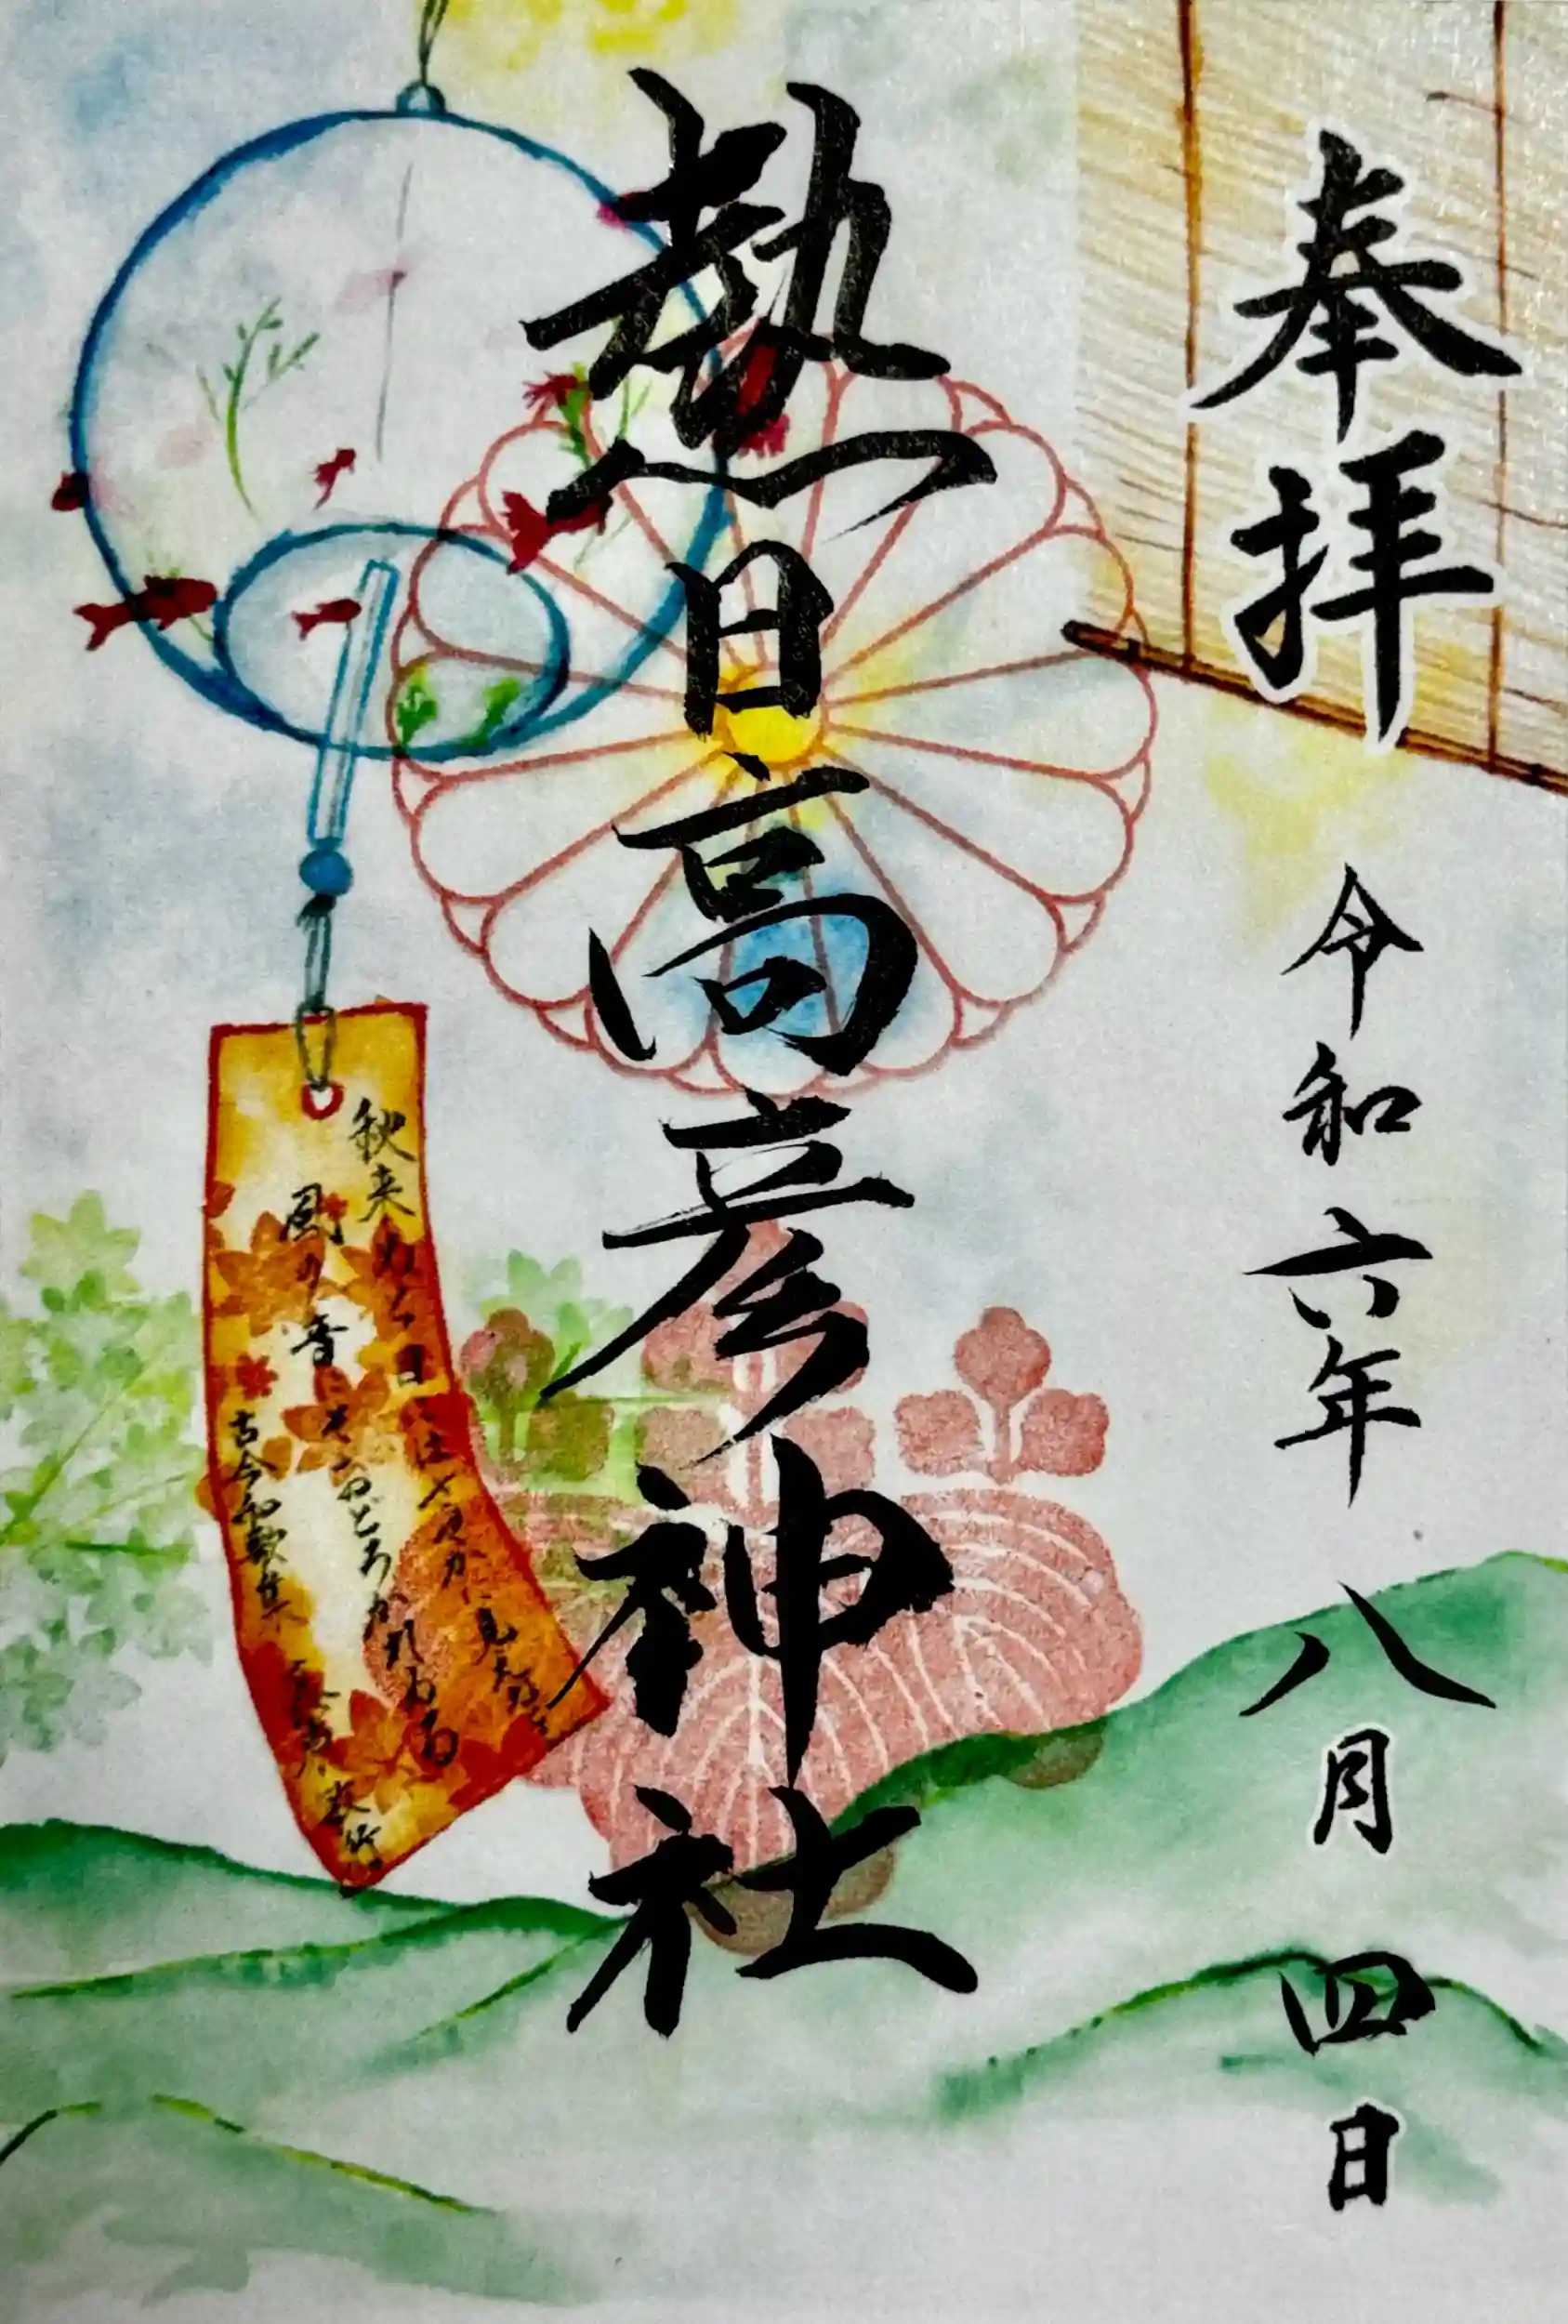 奉拝
令和六年 八月 四日
熱日高彦神社
秋来ぬと目にはさやかに見えねども
風の音にぞおどろかれぬる
古今和歌集